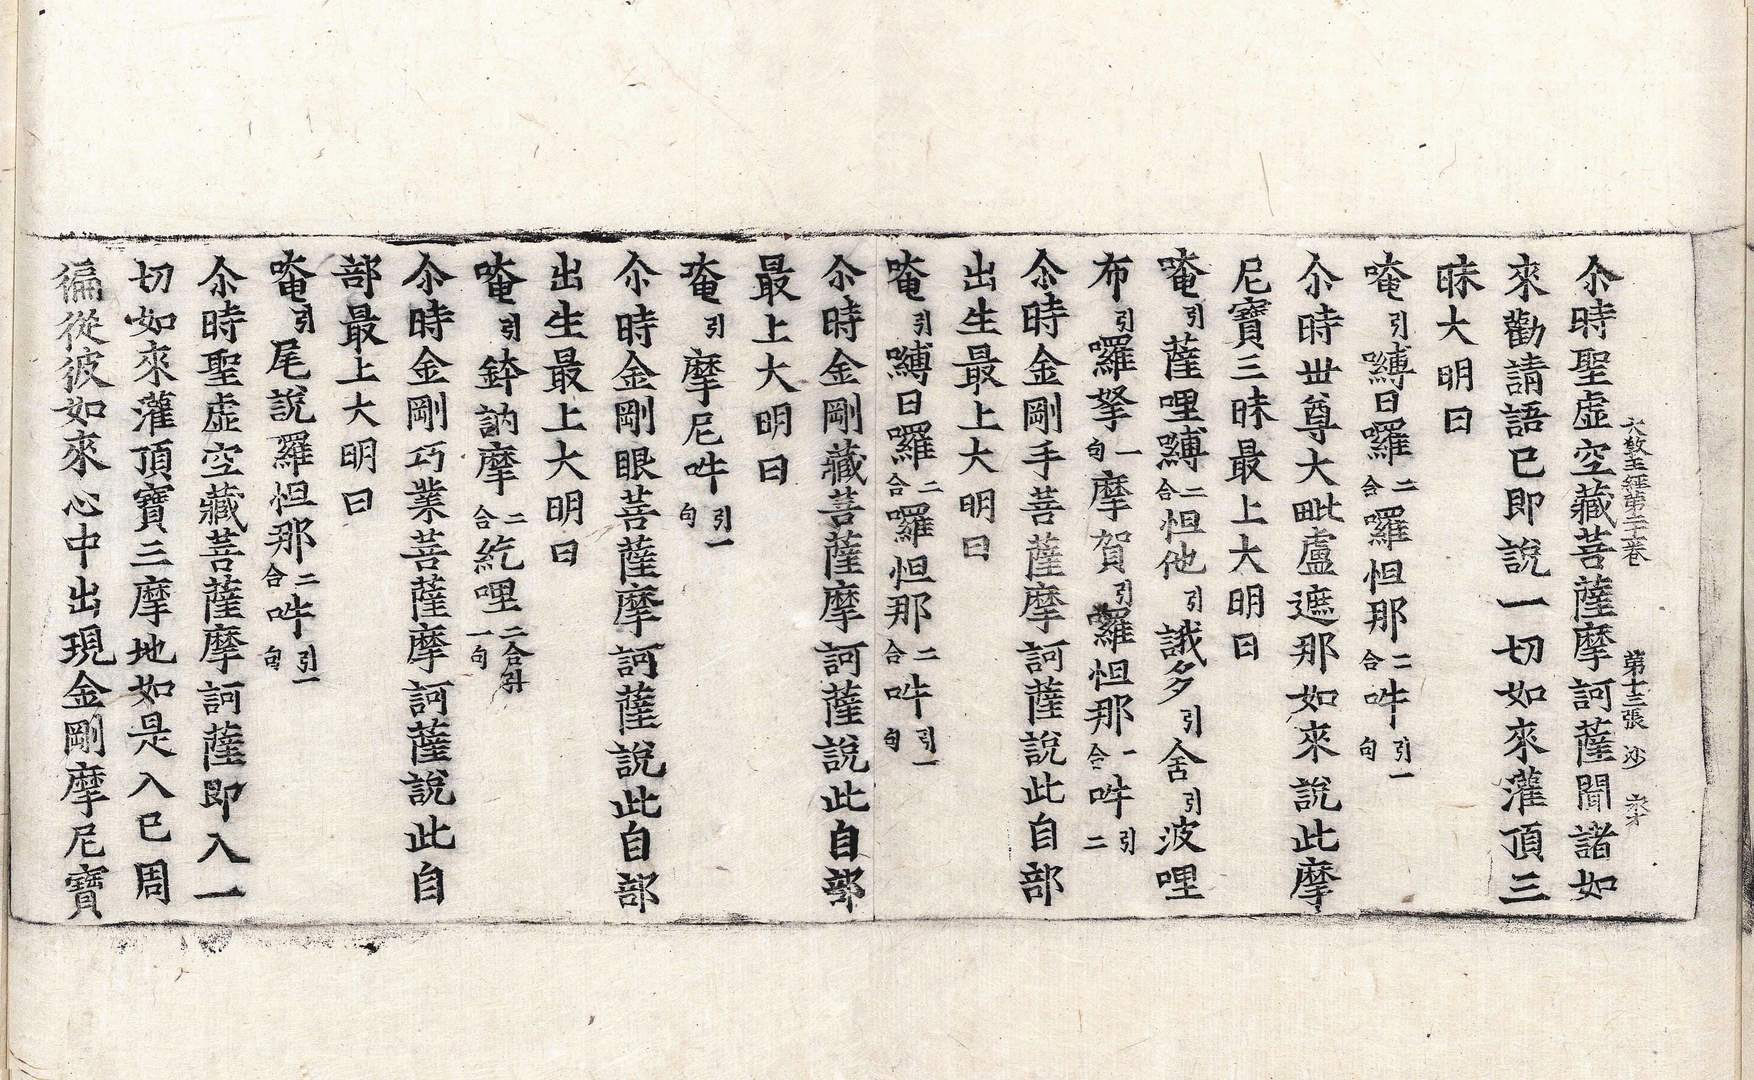 大教王經第二十卷　第十三張　沙
尒時聖虛空藏菩薩摩訶薩聞諸如
來勸請語已即說一切如來灌頂三
昧大明曰
唵引嚩日囉二合囉怛那二合吽引一句
尒時世尊大毗盧遮那如來說此摩
尼寶三昧最上大明曰
唵引薩哩嚩二合怛他引誐多引舍引波哩
布引囉拏一句摩賀引囉怛那二合吽引二
尒時金剛手菩薩摩訶薩說此自部
出生最上大明曰
唵引嚩日囉二合囉怛那二合吽引一句
尒時金剛藏菩薩摩訶薩說此自部
最上大明曰
唵引摩尼吽引一句
尒時金剛眼菩薩摩訶薩說此自部
出生最上大明曰
唵引鉢訥摩二合紇哩二合引一句
尒時金剛巧業菩薩摩訶薩說此自
部最上大明曰
唵引尾說囉怛那二合吽引一句
尒時聖虛空藏菩薩摩訶薩即入一
切如來灌頂寶三摩地如是入已周
徧從彼如來心中出現金剛摩尼寶